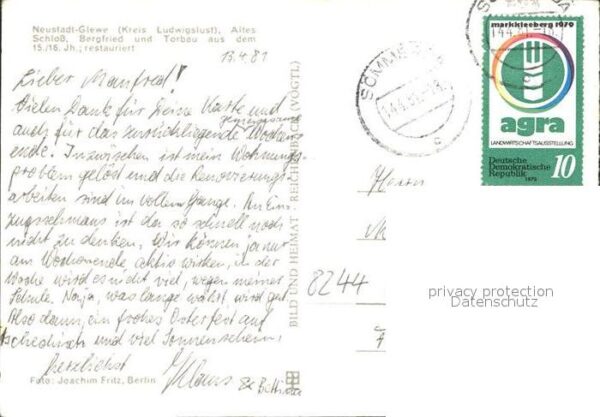 Neustadt-Glewe (Kreis Ludwigslust), Altes
Schloß, Bergfried und Torbau aus dem
15./16. Jh.; restauriert
13.4.81
Lieber Manfred!
Vielen Dank für Deine Karte und
auch für das zurückliegende gemeinsame Wochen-
ende. Inzwischen ist mein Wohnungs-
problem gelöst und die Renovierungs-
arbeiten sind im vollen Gange. An Ein-
zugsschmaus ist da so schnell noch
nicht zu denken. Wir können ja nur
am Wochenende aktiv wirken, in der
Woche wird es nicht viel, wegen meiner
Schule. Naja, was lange währt wird gut.
Also dann, ein frohes Osterfest auf
tschechisch und viel Sonnenschein.
Herzlichst Klaus
Foto: Joachim Fritz, Berlin
BILD UND HEIMAT REICHENBACH (VOGTL)
8244
14.4.81-18
c
14.4.81-18
markkleeberg 1979
agra
LANDWIRTSCHAFTSAUSSTELLUNG
Deutsche
Demokratische
Republik 10
1979
Herrn
M
privacy protection
Datenschutz